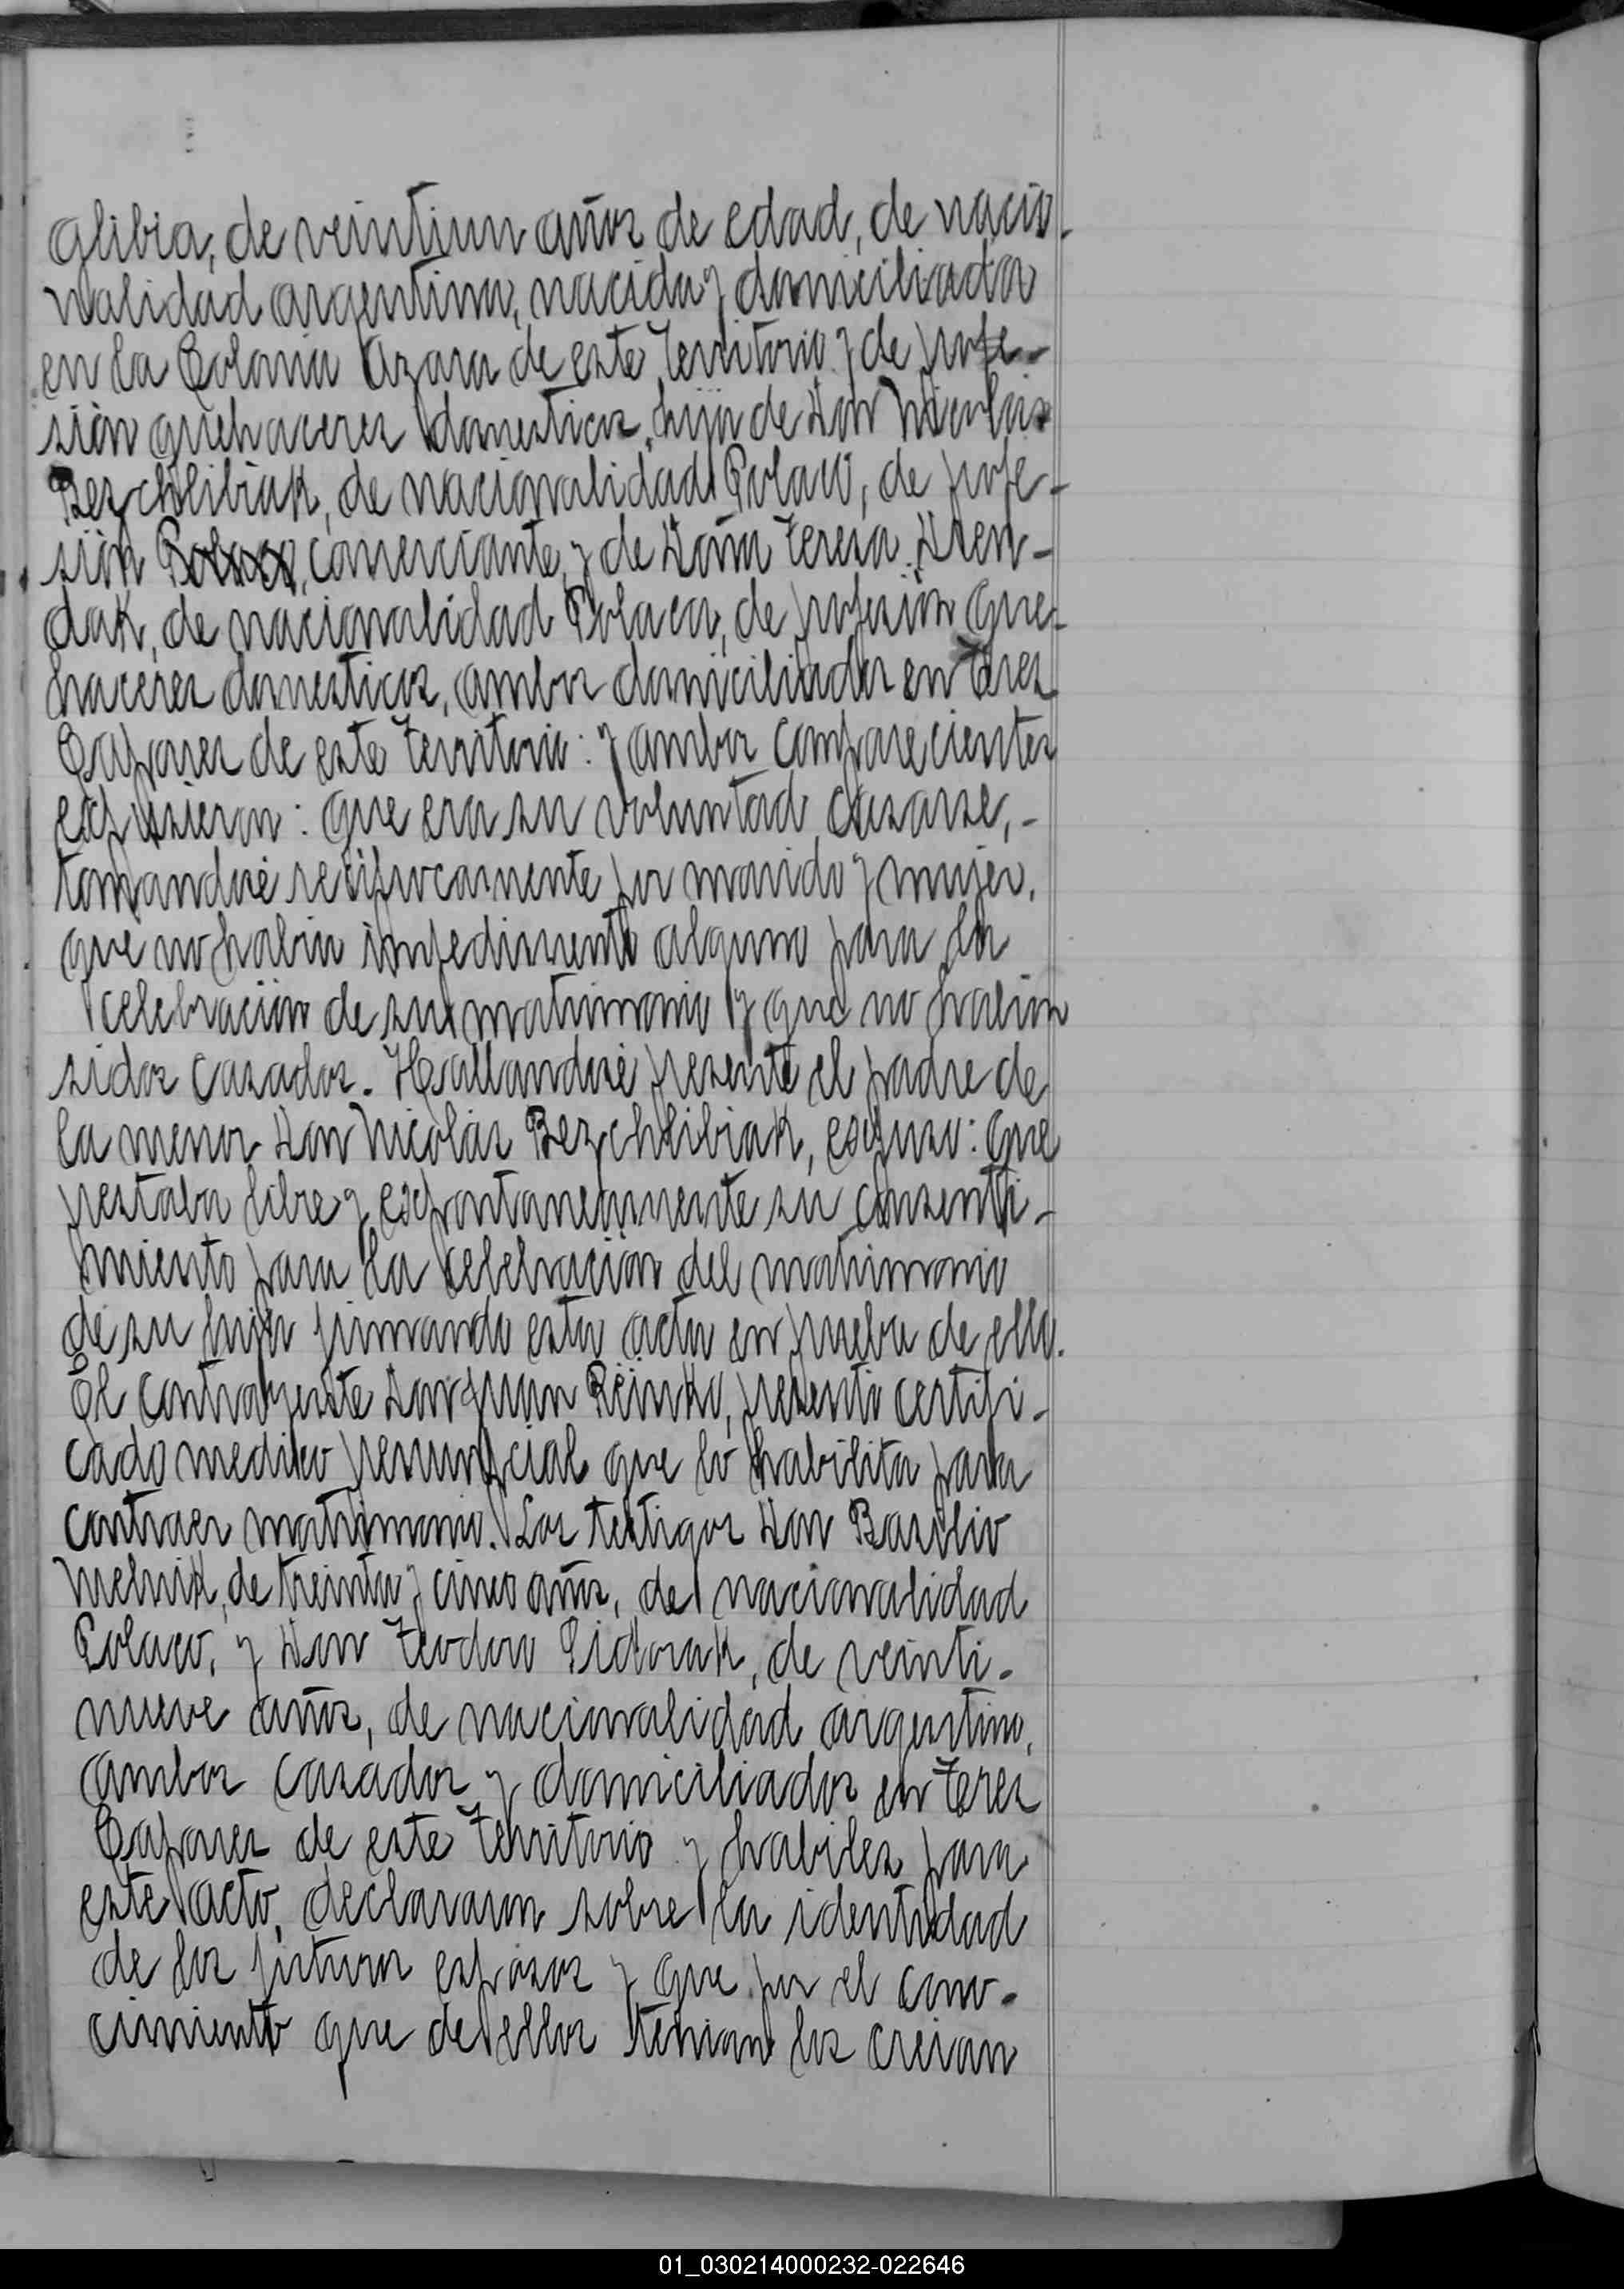 alibia, de veintiun años de edad, de nacio-
nalidad argentina, nacida y domiciliada
en la Colonia Azara de este Territorio y de profe-
sión quehaceres domesticos, hija de Don Nicolás
Bezchlibiak, de nacionalidad Polaco, de profe-
sión Polaco, comerciante, y de Doña Teresa Dren-
dak, de nacionalidad Polaca, de profesión que-
haceres domesticos, ambos domiciliados en Tres
Capones de este Territorio: y ambos comparecientes
expusieron: que era su voluntad casarse,-
tomandosé reciprocamente por marido y mujer,
que no habia impedimento alguno para la
celebración de su matrimonio y que no habian
sidos casados. Hallandosé presente el padre de
la menor Don Nicolás Bezchlibiak, expuso: que
prestaba libre y expontaneamente su consenti-
miento para la celebración del matrimonio
de su hija firmando esta acta en prueba de ello.
El contrayente Don Juan Reinko, presentó certifi-
cado medico prenupcial que lo habilita para
contraer matrimonio. Los testigos Don Basilio
Melnik, de treinta y cinco años, de nacionalidad
Polaco, y Don Teodoro Sidorak, de veinti-
nueve años, de nacionalidad argentino,
ambos casados y domiciliados en Tres
Capones de este Territorio y habiles para
este acto, declararon sobre la identidad
de los futuros esposos y que por el cono-
cimiento que de ellos tenian los creian
01_030214000232-022646